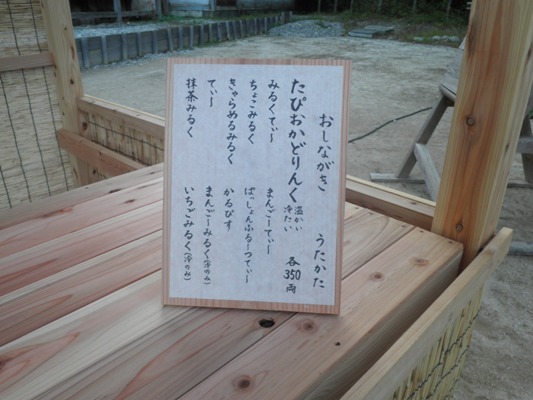 おしながき　うたかた
たぴおかどりんく 温かい 冷たい 各350両
みるくてぃ〜　まんごーてぃ〜
ちょこみるく　ぱっしょんふるーつてぃ〜
きゃらめるみるくてぃ〜　かるぴす
抹茶みるく　まんごーみるく(冷のみ)
いちごみるく(冷のみ)